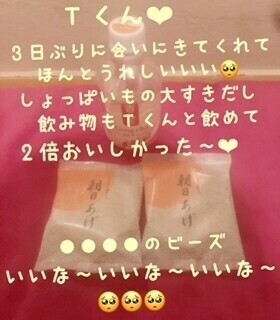 Tくん❤
3日ぶりに会いにきてくれて
ほんとうれしいいい🥺
しょっぱいもの大すきだし
飲み物もTくんと飲めて
2倍おいしかった～❤
朝日あげ
朝日あげ
●●●●のビーズ
いいな～いいな～いいな～
🥺🥺🥺